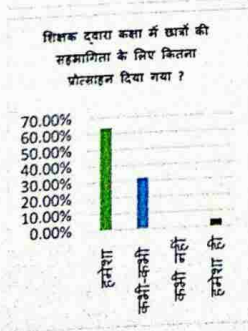 शिक्षक द्वारा कक्षा में छात्रों की
सहभागिता के लिए कितना
प्रोत्साहन दिया गया ?
70.00%
60.00%
50.00%
40.00%
30.00%
20.00%
10.00%
0.00%
हमेशा
कभी-कभी
कभी नहीं
हमेशा ही